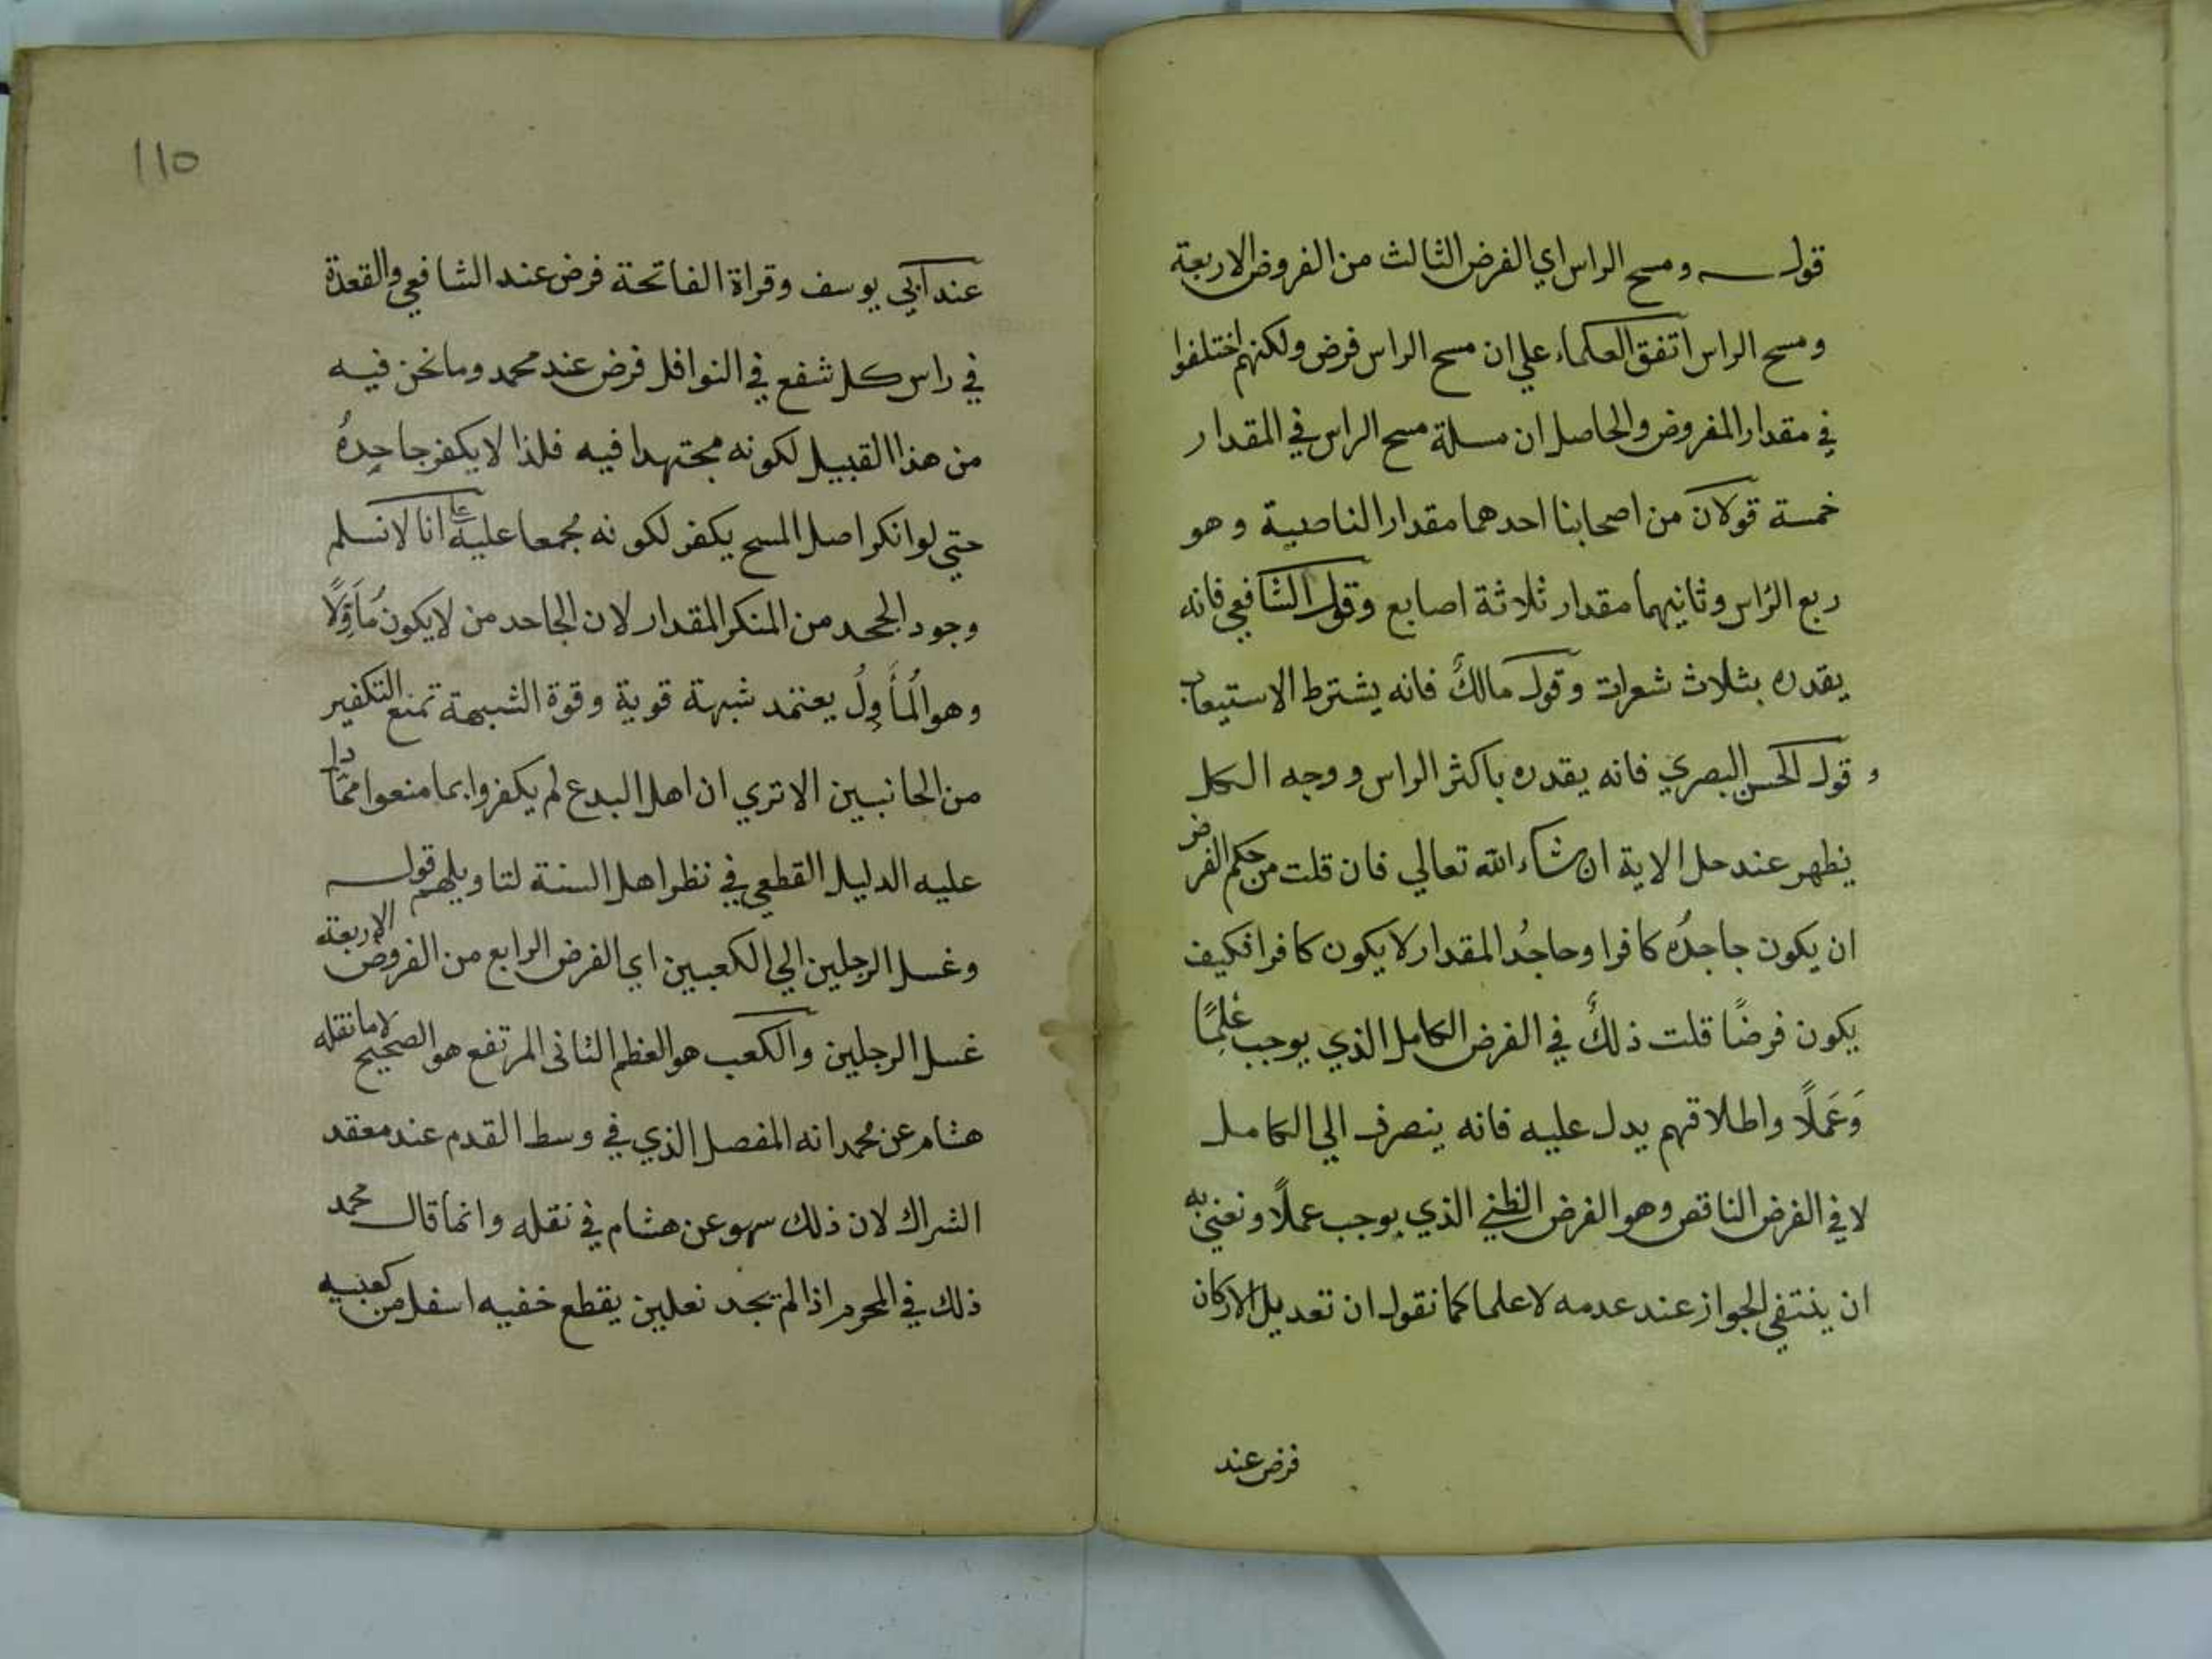 قوله ومسح الراس اي الفرض الثالث من الفروض الاربعة
ومسح الراس اتفق العلماء علي ان مسح الراس فرض ولكنهم اختلفوا
في مقدار المفروض والحاصل ان مسلة مسح الراس في المقدار
خمسة قولان من اصحابنا احدهما مقدار الناصية وهو
ربع الرّاس وثانيهما مقدار ثلاثة اصابع وقول الشافعي فانه
يقدره بثلاث شعرات وقول مالك فانه يشترط الاستيعاب
وقول الحسن البصري فانه يقدره باكثر الراس ووجه الكل
يظهر عند حل الاية ان شاء الله تعالي فان قلت من حكم الفرض
ان يكون جاحدُه كافرا وجاحدُ المقدار لا يكون كافرا فكيف
يكون فرضًا قلت ذلك في الفرض الكامل الذي يوجب علمًا
وَعَملًا واطلاقهم يدل عليه فانه ينصرف الي الكامل
لا في الفرض الناقص وهو الفرض الظني الذي يوجب عملًا ونعني به
ان ينتفي الجواز عند عدمه لا علما كما نقول ان تعديل الاركان
فرض عند
110
عند ابي يوسف وقراة الفاتحة فرض عند الشافعي والقعدة
في راس كل شفع في النوافل فرض عند محمد وما نحن فيه
من هذا القبيل لكونه مجتهدا فيه فلذا لا يكفر جاحِدهُ
حتي لو انكر اصل المسح يكفر لكونه مُجمعا عليه علي انا لا نسلم
وجود الجحد من المنكر المقدار لان الجاحد من لا يكون مُاَوِّلًا
وهو المُأَوِلُ يعتمد شبهة قوية وقوة الشبهة تمنع التكفير
من الجانبين الا تري ان اهل البدع لم يكفروا بما منعوا ممّا دل
عليه الدليل القطعي في نظر اهل السنة لتاويلهم قوله
وغسل الرجلين الي الكعبين اي الفرض الرابع من الفروض الاربعة
غسل الرجلين والكعب هو العظم الناتى المرتفع هو الصحيح لا ما نقله
هشام عن محمد انه المفصل الذي في وسط القدم عند معقد
الشراك لان ذلك سهو عن هشام في نقله وانما قال محمد
ذلك في المحرم اذا لم يجد نعلين يقطع خفيه اسفل من كعبيه